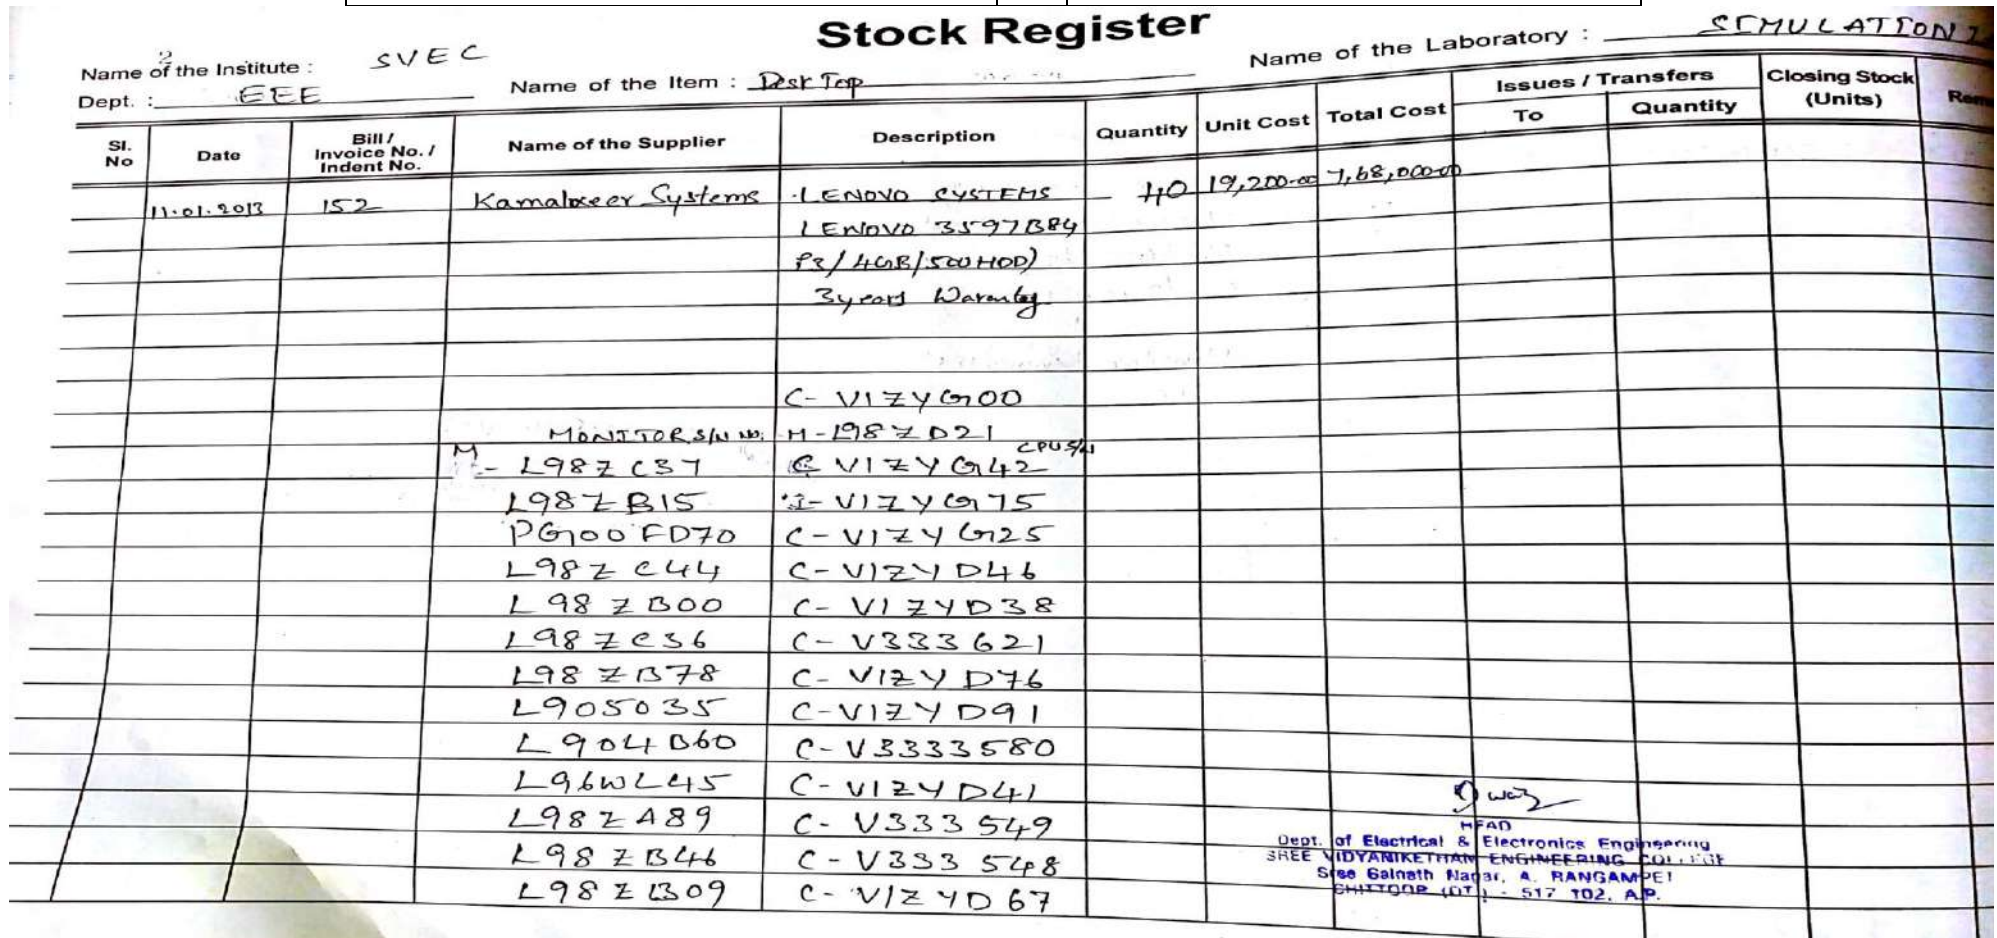 Stock Register
Name of the Institute : SVEC
Name of the Laboratory : SIMULATION
Dept. : EEE
Name of the Item : Desk Top
Sl. No
Date
Bill / Invoice No. / Indent No.
Name of the Supplier
Description
Quantity
Unit Cost
Total Cost
Issues / Transfers
To
Quantity
Closing Stock (Units)
11.01.2013 152 Systems LENOVO SYSTEMS 40 19,200-00 7,68,000-00
LENOVO 3597B84
/4GB/500HDD)
3years
C- V1ZYG00
MONITOR S/N NO: M-L98ZD21
M - L98ZC37 C V1ZYG42 CPU S/N
L98ZB15 V1ZYG75
PG100FD70 C-V1ZYG25
L98ZC44 C-V1ZYD46
L98ZB00 C-V1ZYD38
L98ZC36 C-V333621
L98ZB78 C-V1ZYD76
L905035 C-V1ZYD91
L904B60 C-V3333580
L96WL45 C-V1ZYD41
L98ZA89 C-V333549
L98ZB46 C-V333548
L98ZB09 C-V1ZYD67
HEAD
Dept. of Electrical & Electronics Engineering
SREE VIDYANIKETHAN ENGINEERING COLLEGE
Sree Sainath Nagar, A. RANGAMPET
CHITTOOR (DT) - 517 102. A.P.